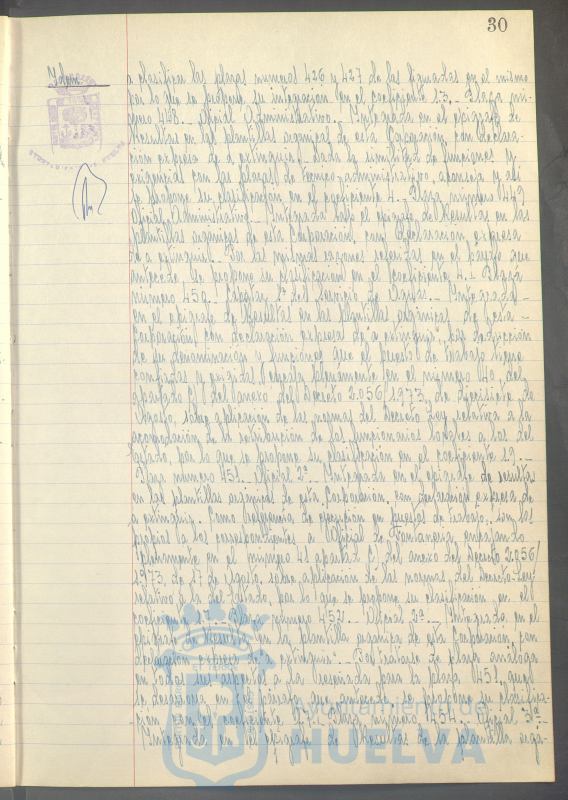 30
Idem.
a clasificar las plazas numeros 426 y 427 de las figuradas en el mismo
por lo que se propone su integracion en el coeficiente 1'3.- Plaza nú-
mero 448.- Oficial Administrativo.- Integrada en el epigrafe de
Resultas en las plantillas orgánicas de esta Corporación, con declara-
ción expresa de a extinguir. Dada la similitud de funciones y
exigencias con las plazas de tecnico-administrativo, aconseja y así
se propone su clasificación en el coeficiente 4.- Plaza número 449
Oficial Administrativo.- Integrada bajo el epigrafe de Resultas en las
plantillas orgánicas de esta Corporación, con declaración expresa
de a extinguir.- Por las mismas razones referidas en el parrafo que
antecede se propone su clasificación en el coeficiente 4.- Plaza
número 450. 1ª del Servicio de Aguas.- Integrada
en el epigrafe de Resultas en las plantillas orgánicas de esta
Corporación, con declaración expresa de "a extinguir",
de su denominación y funciones que el puesto de trabajo tiene
confiadas y exigidas, encaja plenamente en el número 40 del
apartado C) del anexo del Decreto 2.056/1973, de diecisiete de
Agosto, sobre aplicación de las normas del Decreto Ley relativa a la
acomodación de la retribución de los funcionarios locales a los del
Estado, por lo que se propone su clasificación en el coeficiente 1'9.-
Plaza número 451. Oficial 2ª.- Integrada en el epigrafe de resultas
en las plantillas orgánicas de esta Corporación, con declaración expresa de
a extinguir. Como referencia de ejecución en puestos de trabajo, son las
propias a las correspondientes a Oficial de Fontanería, encajando
plenamente en el número 41 apartado C) del anexo del Decreto 2.056/
1973, de 17 de Agosto, sobre aplicación de las normas del Decreto-Ley
relativo a la del Estado, por lo que se propone su clasificación en el
coeficiente 1'7.- Plaza número 452. Oficial 2ª.- Integrada en el
epigrafe de Resultas en la plantilla orgánica de esta Corporación, con
declaración expresa de "a extinguir".- Por tratarse de plaza análoga
en todos sus aspectos a la reseñada para la plaza 451, que
se desarrolla en el parrafo que antecede, se propone su clasifica-
ción en el coeficiente 1'7.- Plaza número 454.- Oficial 3ª.-
Integrada en el epigrafe de Resultas de la plantilla orgá-
Ayuntamiento de
HUELVA